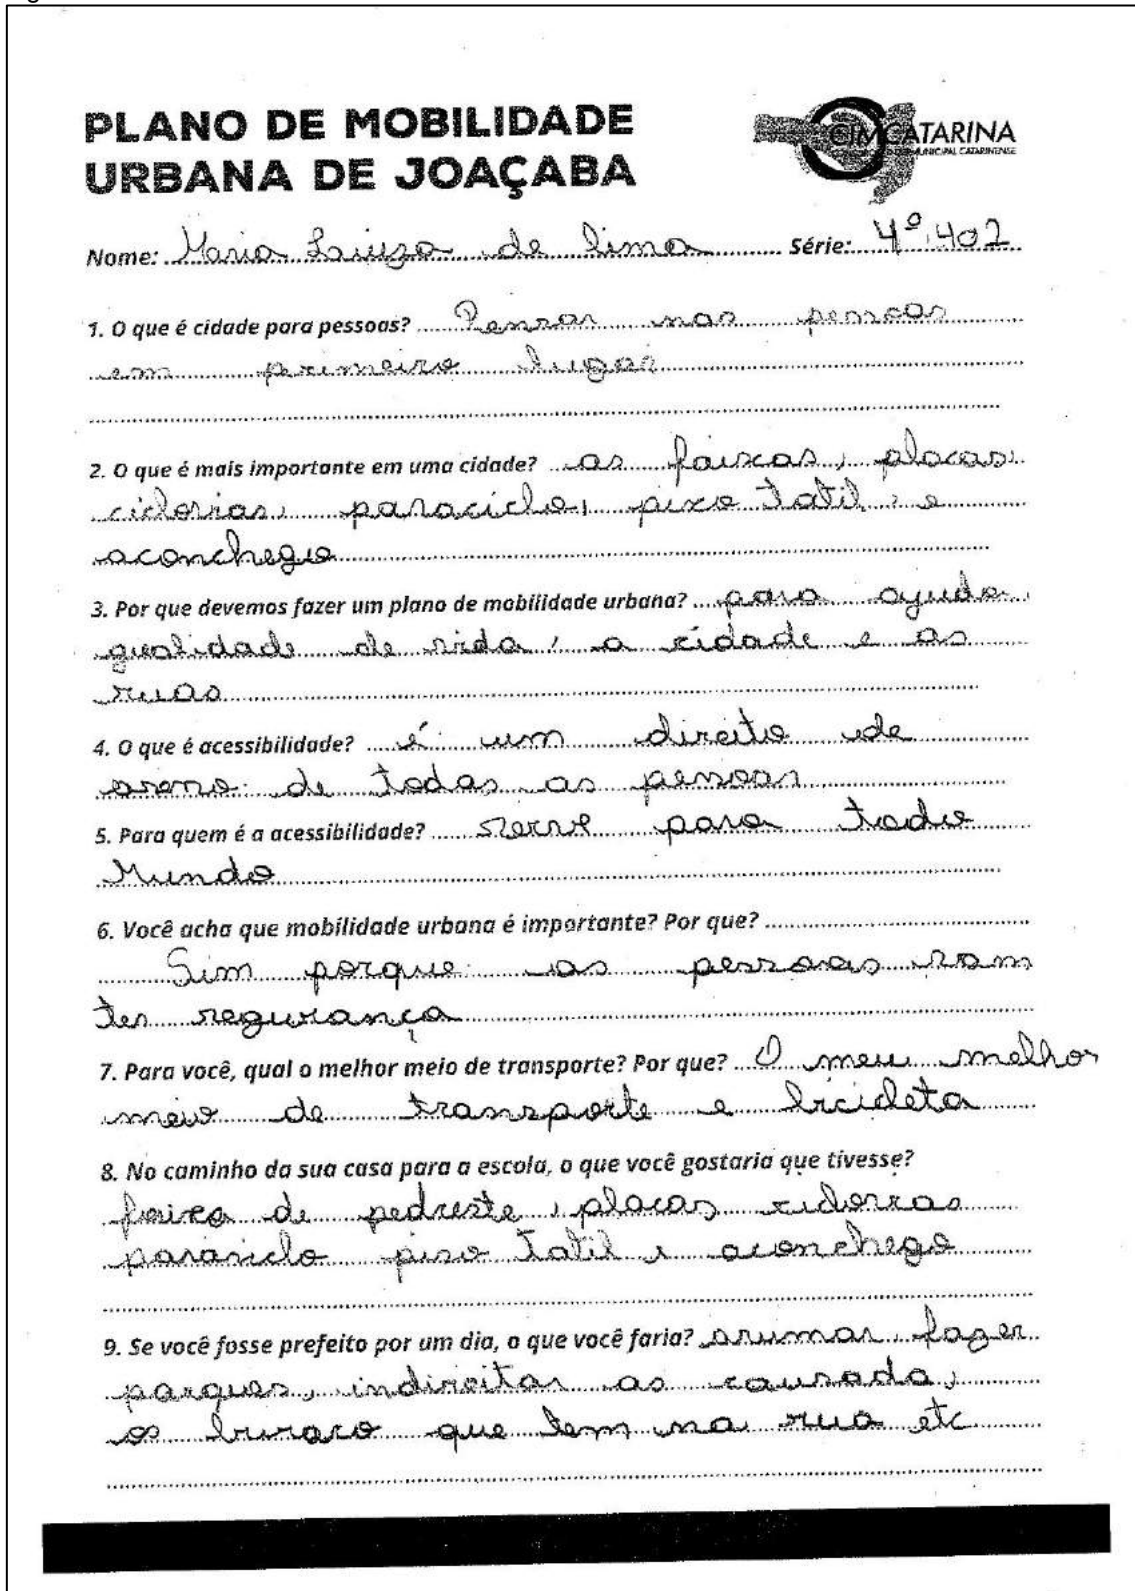 PLANO DE MOBILIDADE
URBANA DE JOAÇABA
CIMCATARINA
Nome: Maria de lima Série: 4º 402
1. O que é cidade para pessoas? Pensar nas pessoas
em primeiro lugar
2. O que é mais importante em uma cidade? as faixas, placas
ciclovias, paraciclo, pixo tatil, e
aconchego
3. Por que devemos fazer um plano de mobilidade urbana? para ajuda
qualidade de vida, a cidade e as
ruas
4. O que é acessibilidade? é um direito de
de todas as pessoas
5. Para quem é a acessibilidade? serve para todo
Mundo
6. Você acha que mobilidade urbana é importante? Por que?
Sim porque as pessoas vam
ter segurança
7. Para você, qual o melhor meio de transporte? Por que? O meu melhor
meio de transporte e bicicleta
8. No caminho da sua casa para a escola, o que você gostaria que tivesse?
faixa de pedreste, placas
piso tatil e aconchego
9. Se você fosse prefeito por um dia, o que você faria? arumar fazer
parques, indireitar as causada,
os buraco que tem na rua etc